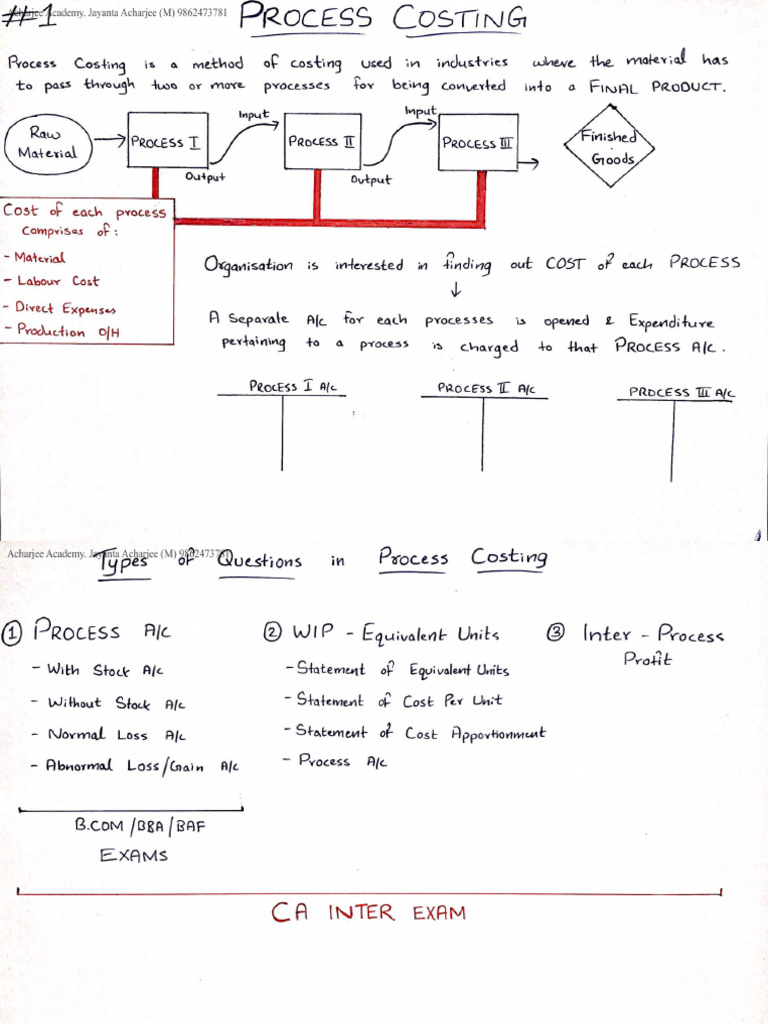 #1
Acharjee Academy. Jayanta Acharjee (M) 9862473781
PROCESS COSTING
Process Costing is a method of costing used in industries where the material has
to pass through two or more processes for being converted into a FINAL PRODUCT.
Raw
Material
PROCESS I
Input
Output
PROCESS II
Input
Output
PROCESS III
Finished
Goods
Cost of each process
comprises of:
- Material
- Labour Cost
- Direct Expenses
- Production O/H
Organisation is interested in finding out COST of each PROCESS
↓
A Separate A/c for each processes is opened & Expenditure
pertaining to a process is charged to that PROCESS A/C.
PROCESS I A/C
PROCESS II A/C
PROCESS III A/C
Acharjee Academy. Jayanta Acharjee (M) 9862473781
Types of Questions in Process Costing
① PROCESS A/C
- With Stock A/c
- Without Stock A/c
- Normal Loss A/c
- Abnormal Loss/Gain A/c
B.COM/BBA/BAF
EXAMS
② WIP - Equivalent Units
- Statement of Equivalent Units
- Statement of Cost Per Unit
- Statement of Cost Apportionment
- Process A/c
③ Inter - Process
Profit
CA INTER EXAM